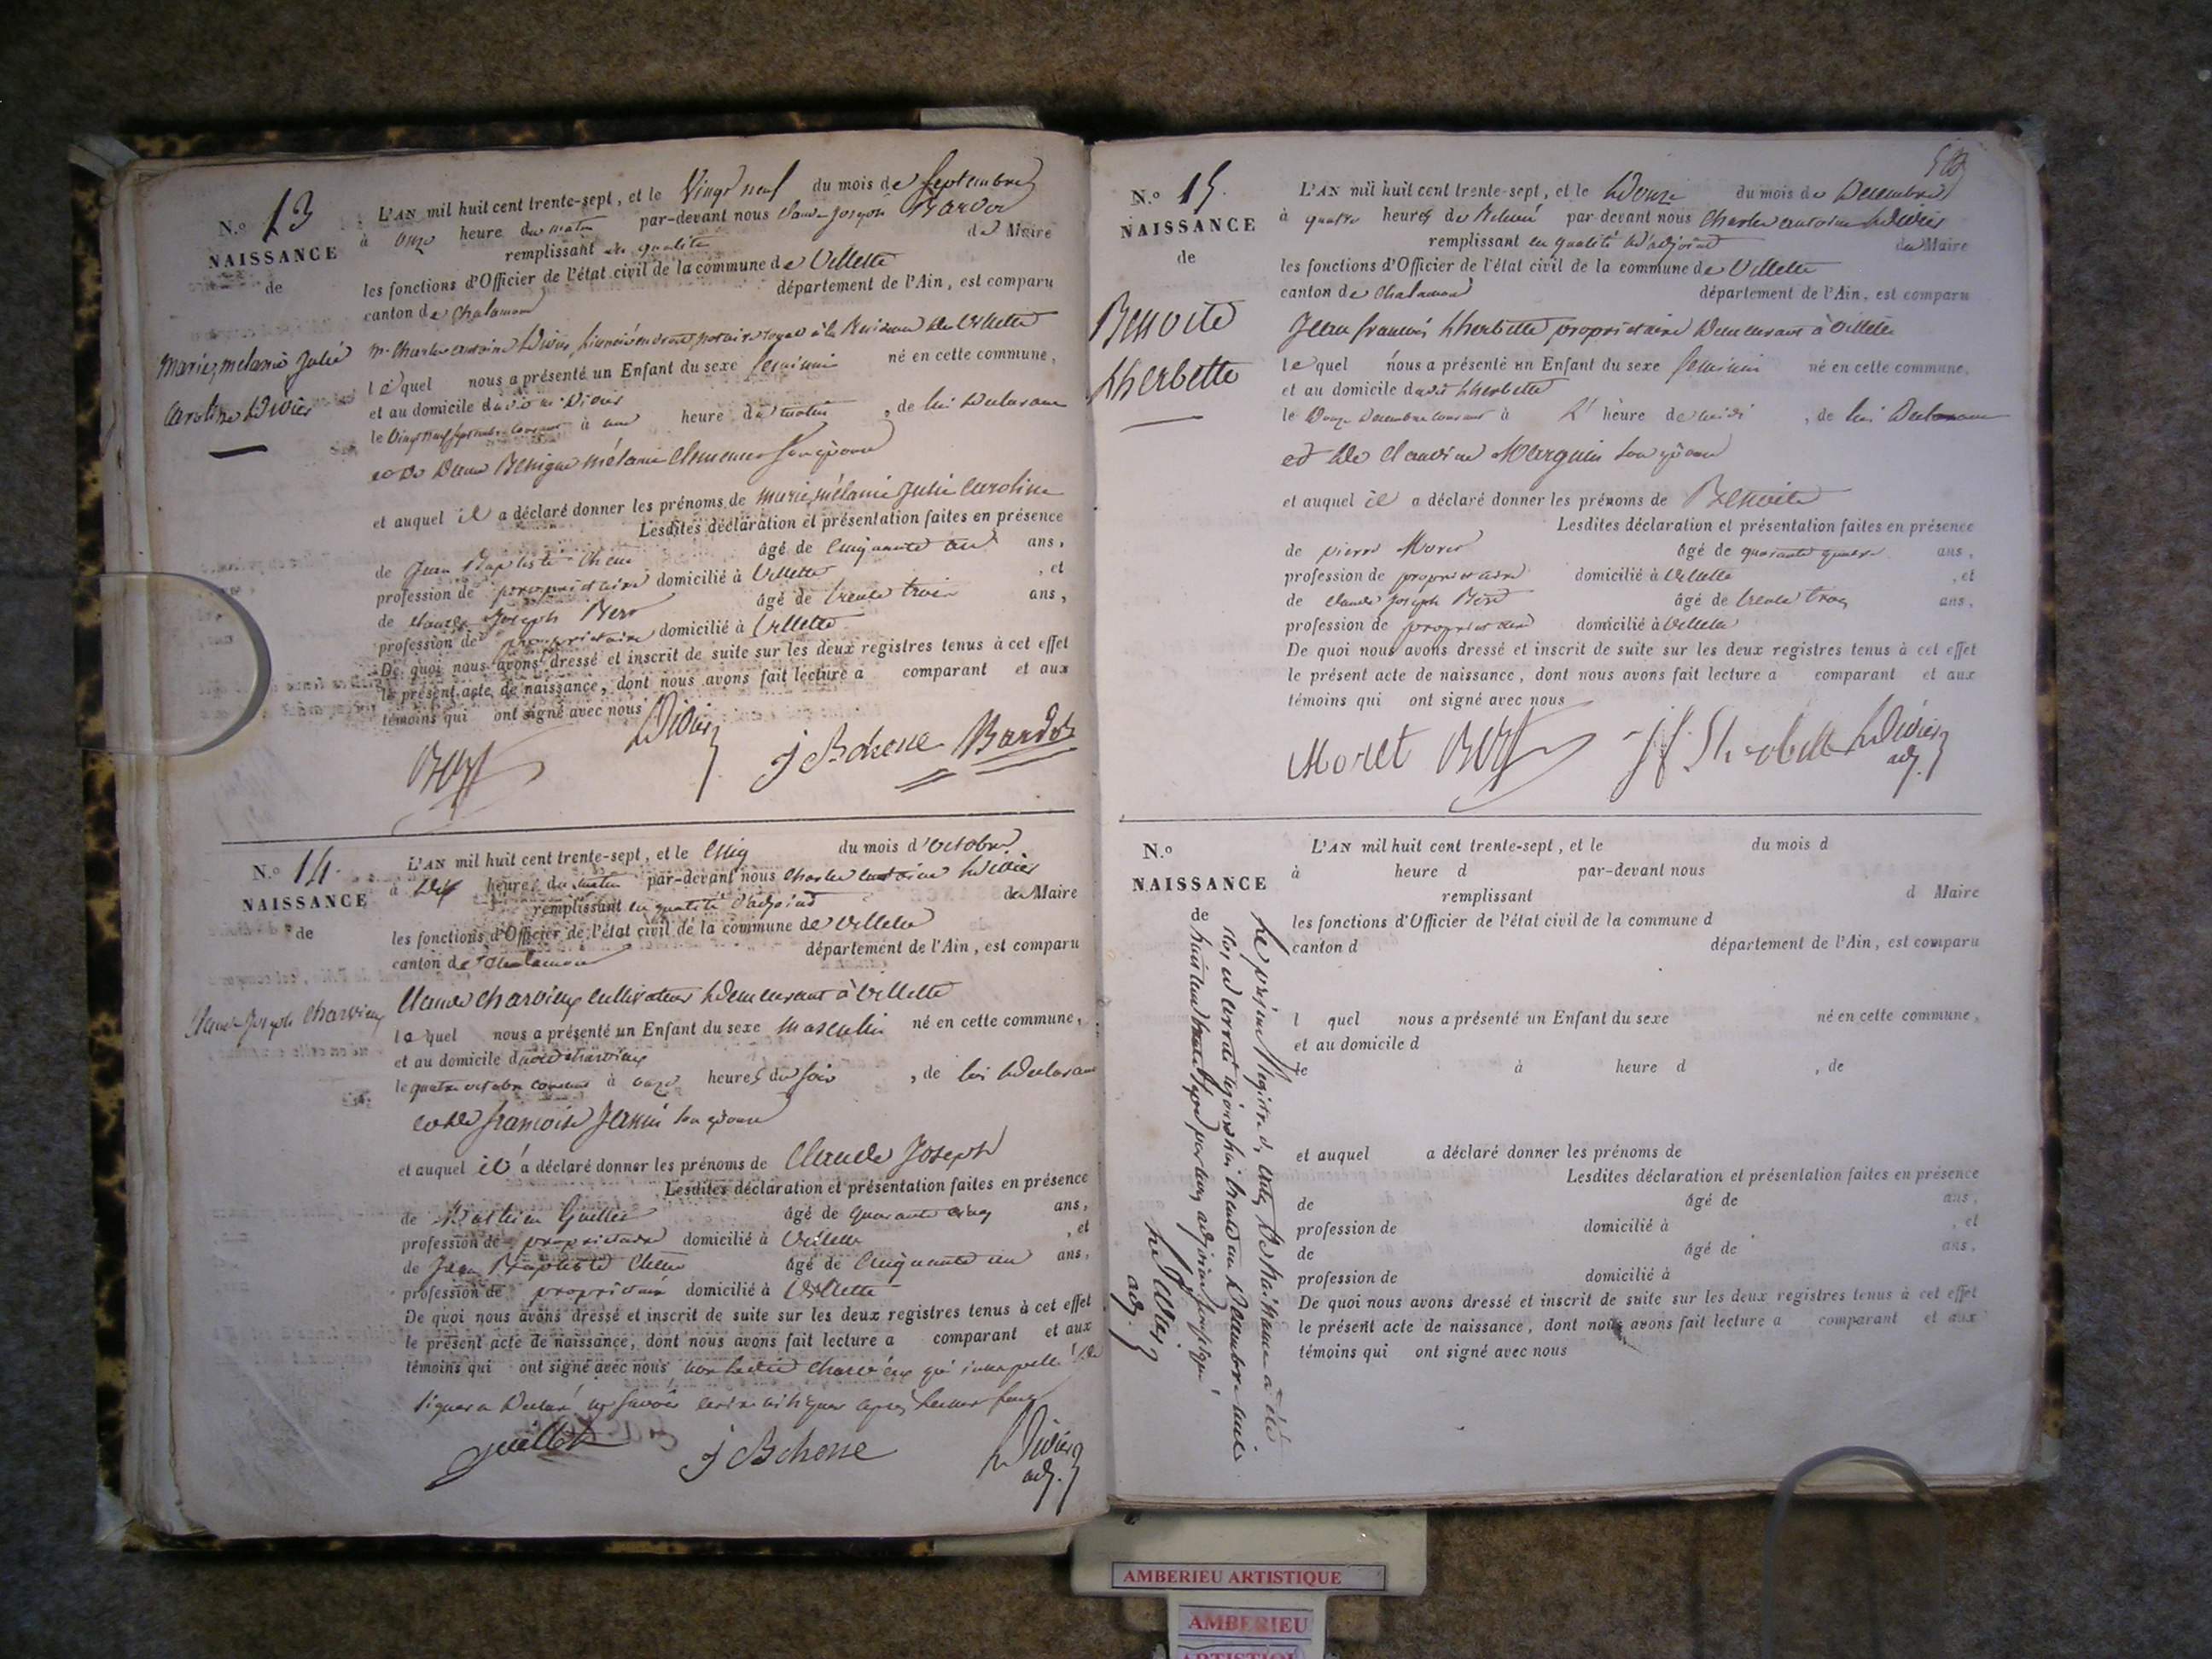 N.o 13
NAISSANCE
de
Marie, mélanie Julie
Caroline Didier
L'AN mil huit cent trente-sept, et le Vingt neuf du mois de Septembre
à onze heure du matin par-devant nous Claude Joseph Bardot
remplissant en qualité de Maire
les fonctions d'Officier de l'état civil de la commune de Villette
canton de Chalamont département de l'Ain, est comparu
Mr Charles antoine Didier, licencié en droit, notaire royal à la Résidence de Villette
lequel nous a présenté un Enfant du sexe feminin né en cette commune,
et au domicile dudit mr Didier
le Vingt neuf septembre courant à une heure du matin, de lui Déclarant
et de Dame Benigne mélanie son épouse
et auquel il a déclaré donner les prénoms de marie, mélanie Julie Caroline
Lesdites déclaration et présentation faites en présence
de Jean Baptiste Chene âgé de Cinquante un ans,
profession de propriétaire domicilié à Villette, et
de Claude Joseph Bert âgé de trente trois ans,
profession de propriétaire domicilié à Villette
De quoi nous avons dressé et inscrit de suite sur les deux registres tenus à cet effet
le présent acte de naissance, dont nous avons fait lecture a comparant et aux
témoins qui ont signé avec nous
Bert Didier J B chene Bardot
N.o 14
NAISSANCE
de
Claude Joseph Charvieux
L'AN mil huit cent trente-sept, et le Cinq du mois d'octobre
à Dix heures du matin par-devant nous Charles antoine Didier
remplissant en qualité d'adjoint de Maire
les fonctions d'Officier de l'état civil de la commune de Villette
canton de Chalamont département de l'Ain, est comparu
Claude Charvieux cultivateur Demeurant à Villette
lequel nous a présenté un Enfant du sexe masculin né en cette commune,
et au domicile dudit Charvieux
le quatre octobre courant à onze heures du soir, de lui Déclarant
et de françoise Jeanin son épouse
et auquel il a déclaré donner les prénoms de Claude Joseph
Lesdites déclaration et présentation faites en présence
de âgé de quarante cinq ans,
profession de propriétaire domicilié à Villette, et
de Jean Baptiste Chene âgé de Cinquante un ans,
profession de propriétaire domicilié à Villette
De quoi nous avons dressé et inscrit de suite sur les deux registres tenus à cet effet
le présent acte de naissance, dont nous avons fait lecture a comparant et aux
témoins qui ont signé avec nous non ledit Charvieux qui interpellé de
signer a Déclaré ne savoir écrire ni signer après lecture faite
J B chene Didier
adj.
N.o 15.
NAISSANCE
de
Benoite
Lherbette
L'AN mil huit cent trente-sept, et le Douze du mois de Decembre
à quatre heures de Relevé par devant nous Charles antoine Didier
remplissant en qualité d'adjoint de Maire
les fonctions d'Officier de l'état civil de la commune de Villette
canton de Chalamont département de l'Ain, est comparu
Jean françois Lherbette propriétaire Demeurant à Villette
lequel nous a présenté un Enfant du sexe feminin né en cette commune,
et au domicile dudit Lherbette
le Douze Decembre courant à l' heure de midi, de lui Déclarant
et de Claudine Marguin son épouse
et auquel il a déclaré donner les prénoms de Benoite
Lesdites déclaration et présentation faites en présence
de pierre Moret âgé de quarante quatre ans,
profession de propriétaire domicilié à Villette, et
de Claude Joseph Bert âgé de trente trois ans,
profession de propriétaire domicilié à Villette
De quoi nous avons dressé et inscrit de suite sur les deux registres tenus à cet effet
le présent acte de naissance, dont nous avons fait lecture a comparant et aux
témoins qui ont signé avec nous
Moret Bert J f Lherbette Didier
adj.
N.o
NAISSANCE
de
L'AN mil huit cent trente-sept, et le du mois d
à heure d par-devant nous
remplissant d Maire
les fonctions d'Officier de l'état civil de la commune d
canton d département de l'Ain, est comparu
l quel nous a présenté un Enfant du sexe né en cette commune,
et au domicile d
le à heure d , de
et auquel a déclaré donner les prénoms de
Lesdites déclaration et présentation faites en présence
de âgé de ans,
profession de domicilié à , et
de âgé de ans,
profession de domicilié à
De quoi nous avons dressé et inscrit de suite sur les deux registres tenus à cet effet
le présent acte de naissance, dont nous avons fait lecture a comparant et aux
témoins qui ont signé avec nous
Le présent Registre des actes de Naissance a été
clos et arreté aujourd'hui trente un Decembre mil
huit cent trente sept par nous adjoint soussigné
Didier
adj.
AMBERIEU ARTISTIQUE
AMBERIEU
ARTISTIQUE